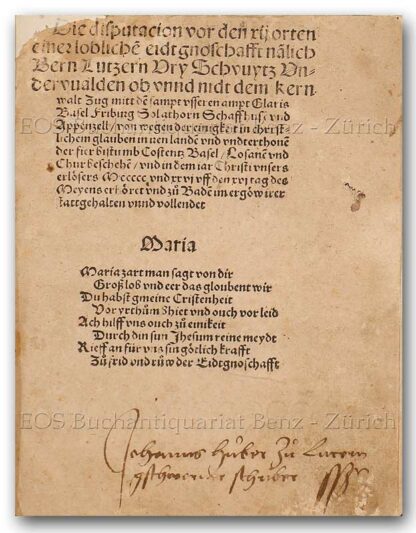 Die disputacion vor den xij orten
einer loblichē eidtgnoschafft nālich
Bern Lutzern Vry Schvuytz Vn-
dervualden ob vnnd nidt dem kern
walt Zug mitt dē sampt vsseren ampt Glaris
Basel Friburg Solathorn Schaffhusē vnd
Appenzell / von wegen der einigkeit in christ-
lichem glauben in iren landē vnd vndterthonē
der fier bistumb Costentz Basel / Losanē vnd
Churbeschehē / vnd in dem iar Christi vnsers
erlösers Mccccc vnd xxvi vff den xvi tag des
Meyens erhöret vnd zů Badē im ergöw irer
stattgehalten vnnd vollendet
EOS Buchantiquariat Benz - Zürich
Maria
Maria zart man sagt von dir
Groß lob vnd eer das gloubent wir
Du habst gmeine Cristenheit
Vor yrthům bhiet vnd ouch vor leid
Ach hilff vns ouch zů einikeit
Durch din sun Jhesum reine meydt
Rieff an für vnz sin götlich krafft
Zů frid vnd růw der Eidtgnoschafft
EOS Buchantiquariat Benz - Zürich
Johannis Hůber Zů Lucern
gschworner schriber